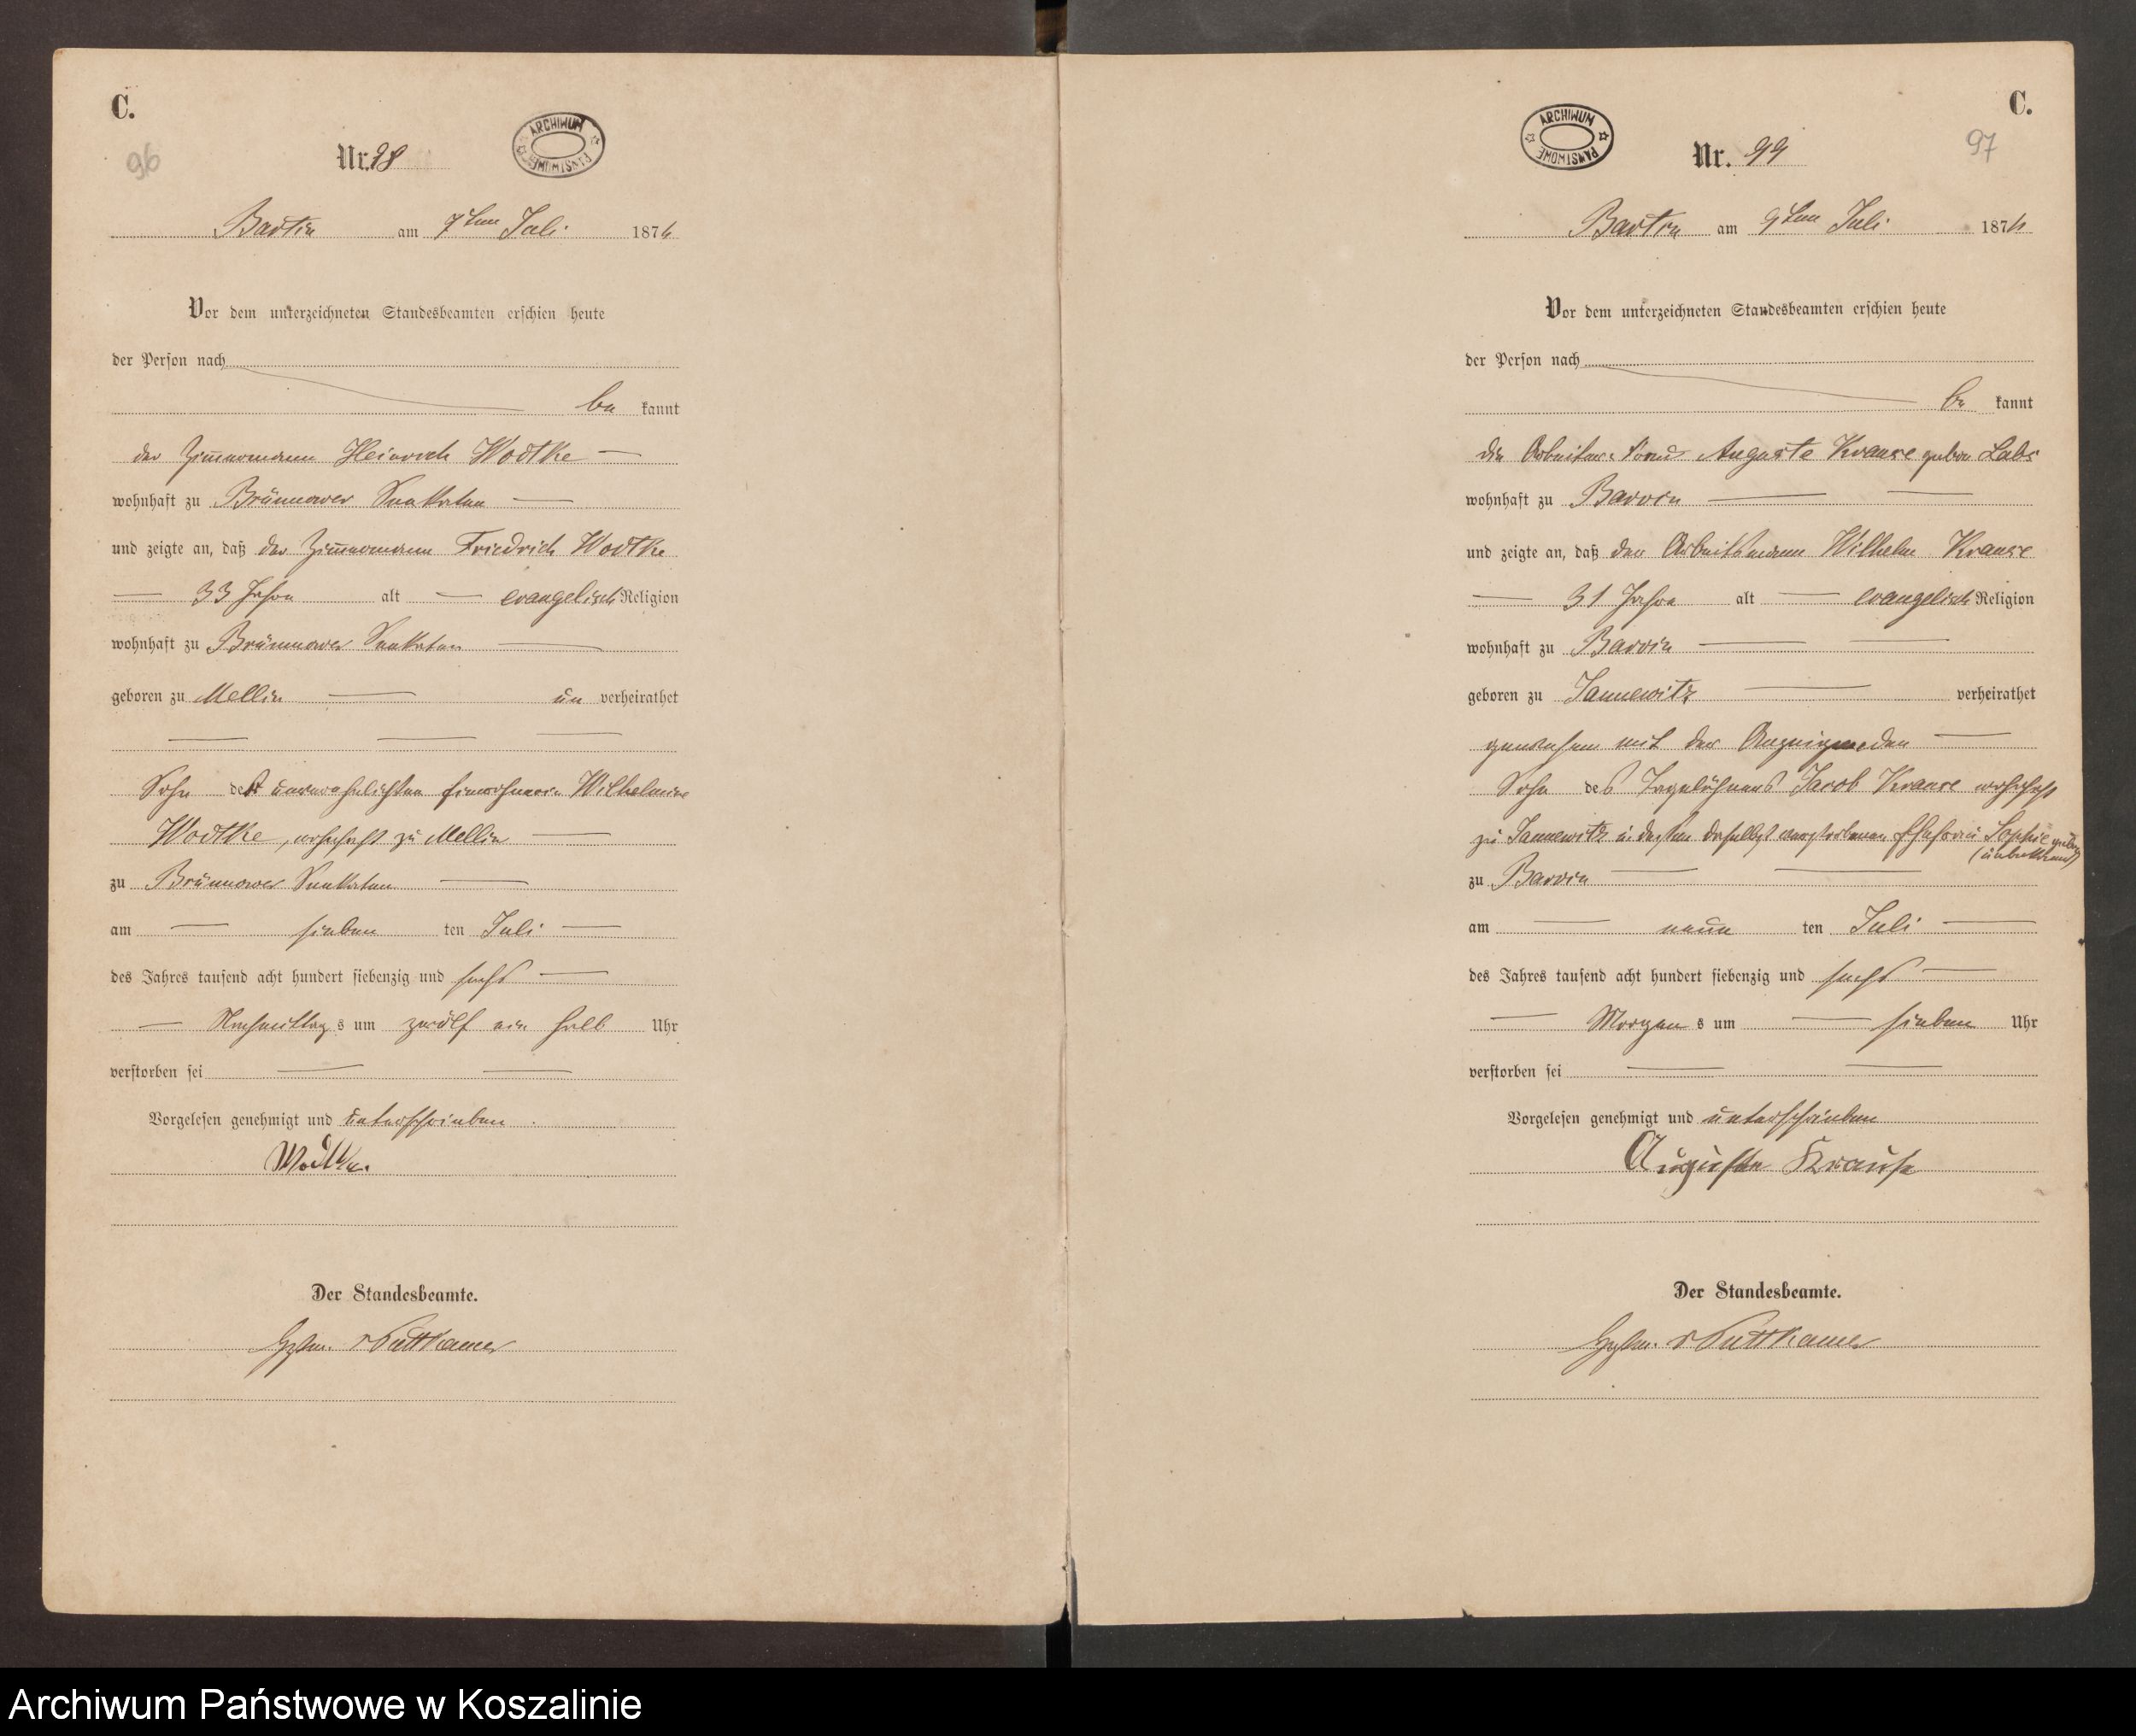 C.
96
Nr. 98
ARCHIWUM PAŃSTWOWE
Bartin am 7ten Juli 1876
Vor dem unterzeichneten Standesbeamten erschien heute
der Person nach
be kannt
der Zimmermann Heinrich Wodtke
wohnhaft zu Brünnower
und zeigte an, daß der Zimmermann Friedrich Wodtke
33 Jahre alt evangelisch Religion
wohnhaft zu Brünnower
geboren zu Mellin un verheirathet
Sohn der unverehelichten Einwohnerin Wilhelmine
Wodtke, wohnhaft zu Mellin
zu Brünnower
am sieben ten Juli
des Jahres tausend acht hundert siebenzig und sechs
Nachmittag s um zwölf ein halb Uhr
verstorben sei
Vorgelesen genehmigt und unterschrieben.
Wodtke.
Der Standesbeamte.
v Puttkamer
C.
97
ARCHIWUM PAŃSTWOWE
Nr. 99
Bartin am 9ten Juli 1876
Vor dem unterzeichneten Standesbeamten erschien heute
der Person nach
be kannt
die Arbeiter Frau Auguste Krause gebor. Labs
wohnhaft zu Barvin
und zeigte an, daß der Arbeitsmann Wilhelm Krause
31 Jahre alt evangelisch Religion
wohnhaft zu Barvin
geboren zu Jannewitz verheirathet
gewesen mit der Anzeigenden
Sohn des Tagelöhners Jacob Krause wohnhaft
zu Jannewitz u dessen daselbst verstorbenen Ehefrau Sophie gebor
(unbekannt)
zu Barvin
am neun ten Juli
des Jahres tausend acht hundert siebenzig und sechs
Morgen s um sieben Uhr
verstorben sei
Vorgelesen genehmigt und unterschrieben
Auguste Krause
Der Standesbeamte.
v Puttkamer
Archiwum Państwowe w Koszalinie